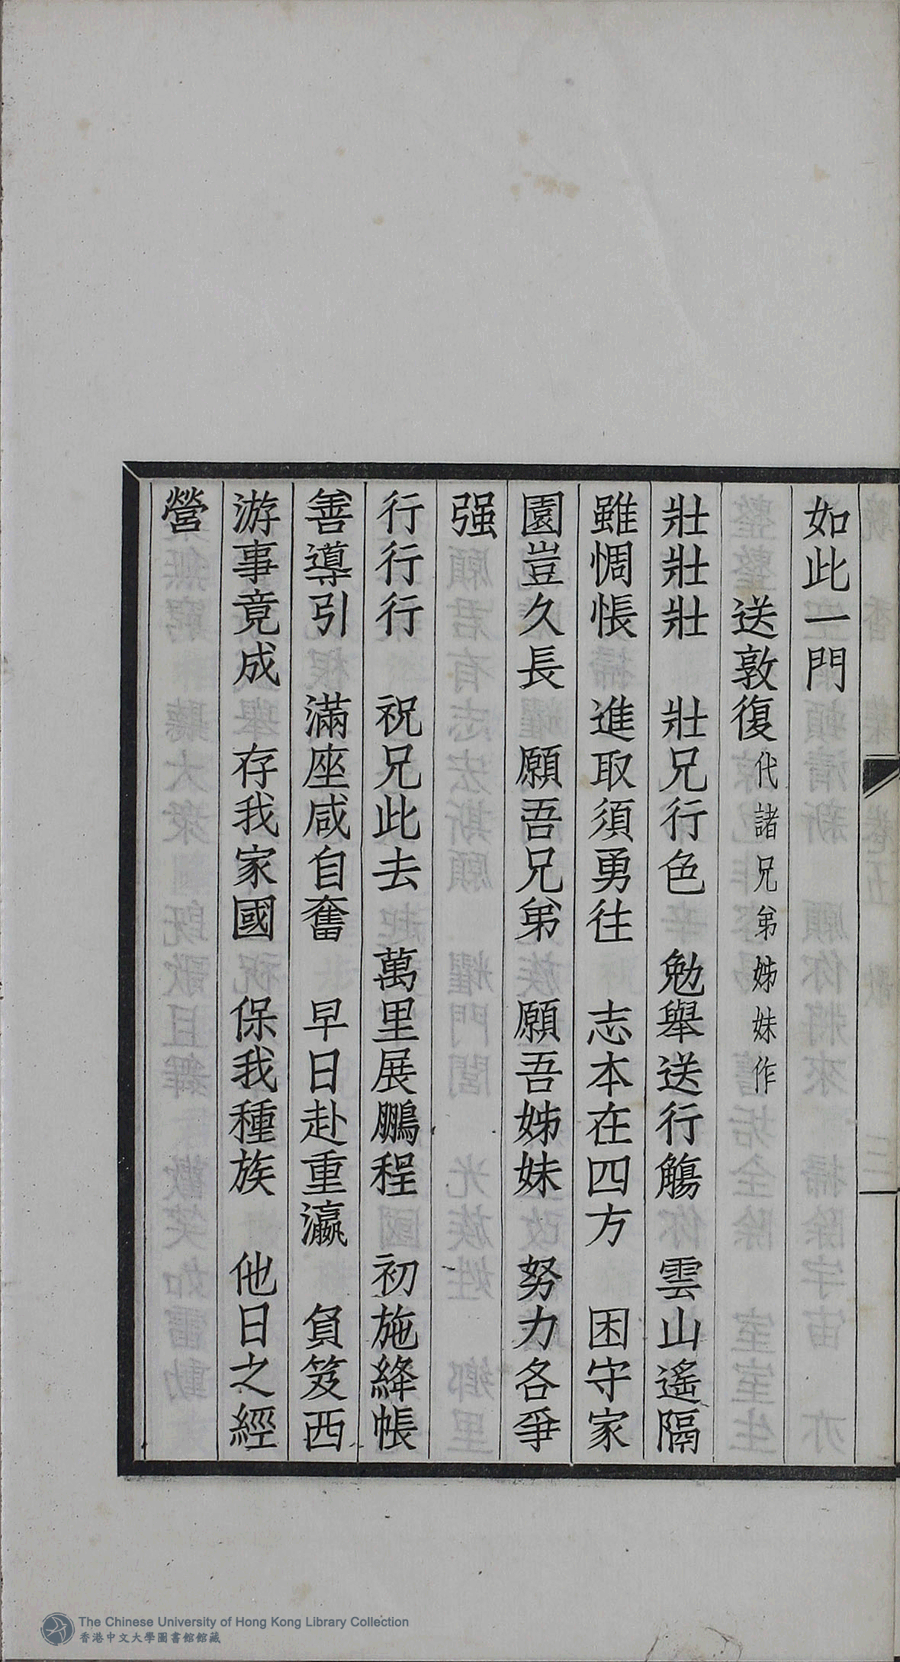 如此一門
送敦復代諸兄弟姊妹作
壯壯壯　壯兄行色　勉舉送行觴　雲山遙隔
雖惆悵　進取須勇往　志本在四方　困守家
園豈久長　願吾兄弟　願吾姊妹　努力各爭
强
行行行　祝兄此去　萬里展鵬程　初施絳帳
善導引　滿座咸自奮　早日赴重瀛　負笈西
游事竟成　存我家國　保我種族　他日之經
營
The Chinese University of Hong Kong Library Collection
香港中文大學圖書館館藏